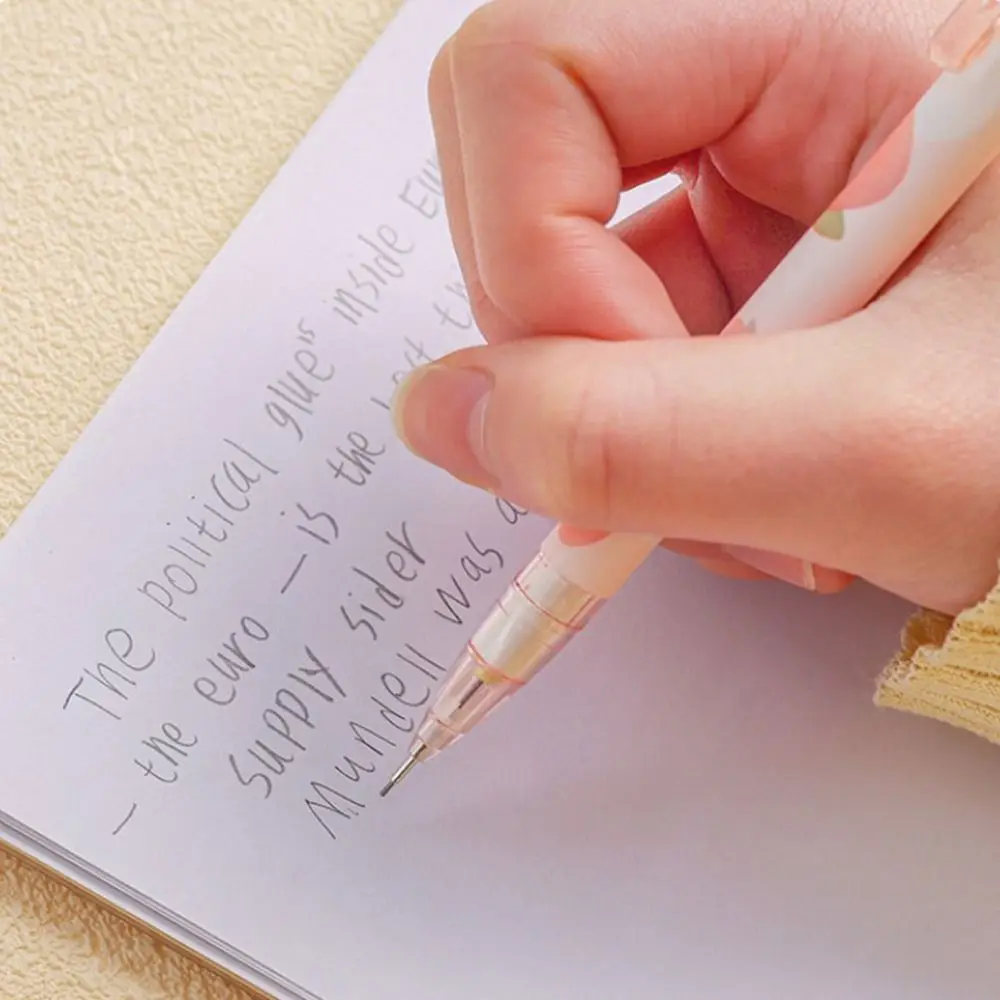 The political glue" inside Eu
– the euro – is the
supply sider
Mundell was a